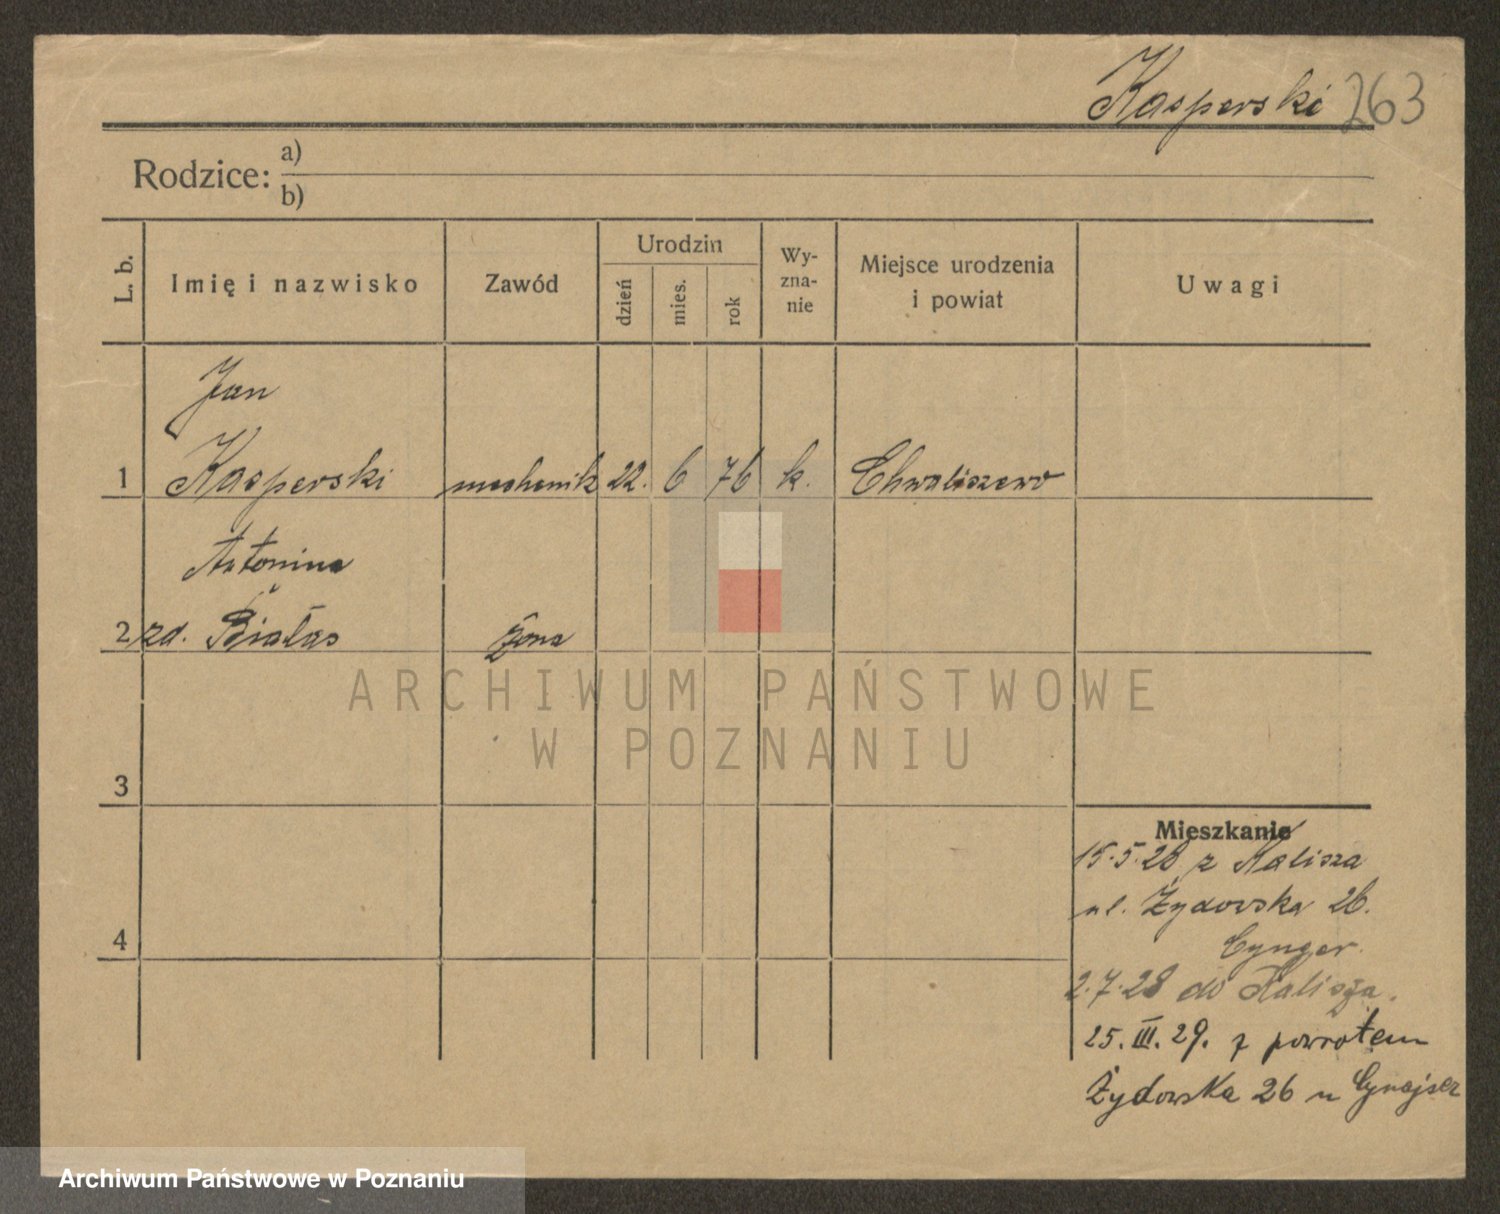 Kasperski 263
Rodzice: a)
b)
L. b.
Imię i nazwisko
Zawód
Urodzin
dzień
mies.
rok
Wy-
zna-
nie
Miejsce urodzenia
i powiat
Uwagi
Jan
1 Kasperski mechanik 22. 6 76 k. Chwaliszewo
Antonina
2 zd. Białas żona
ARCHIWUM PAŃSTWOWE
W POZNANIU
3
Mieszkanie
15.5.28 z Kalisza
ul. Żydowska 26.
4
2.7.28 do Kalisza.
25.III.29. z powrotem
Żydowska 26 u
Archiwum Państwowe w Poznaniu